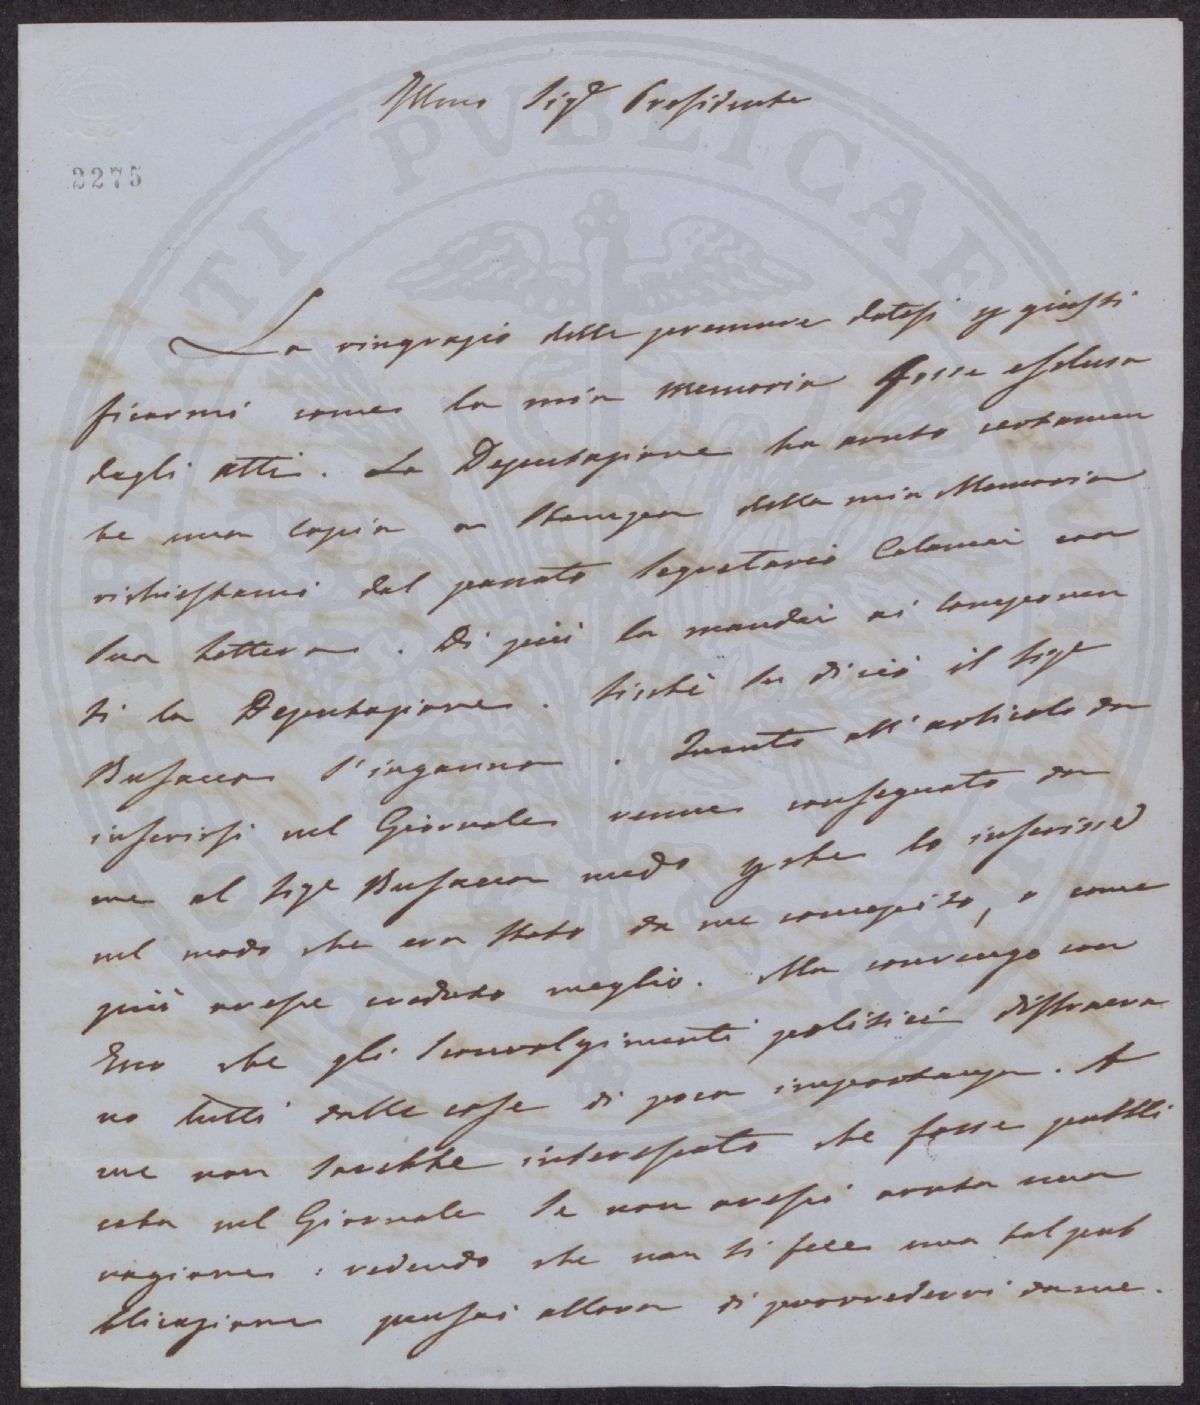 Illmo Sigr Presidente
2275
La ringrazio delle premure datesi p giusti
ficarmi come la mia memoria fosse esclusa
dagli atti. La Deputazione ha avuto certamen
te una copia a stampa della mia Memoria
richiestami dal passato Segretario Calamai con
sua lettera. Di più la mandai ai componen
ti la Deputazione. Sicchè su di ciò il Sigr
Busacca s'inganna. Quanto all'articolo da
inserirsi nel Giornale venne consegnato da
me al Sigr Busacca medo pche lo inserisse
nel modo che era stato da me concepito, o come
più avesse creduto meglio. Ma convengo con
Essa che gli sconvolgimenti politici distraeva
no tutti dalle cose di poca importanza. A
me non sarebbe interessato che fosse pubbli
cata nel Giornale se non avessi avuta una
ragione: vedendo che non si fece una tal pub
blicazione pensai allora di provvedervi da me.